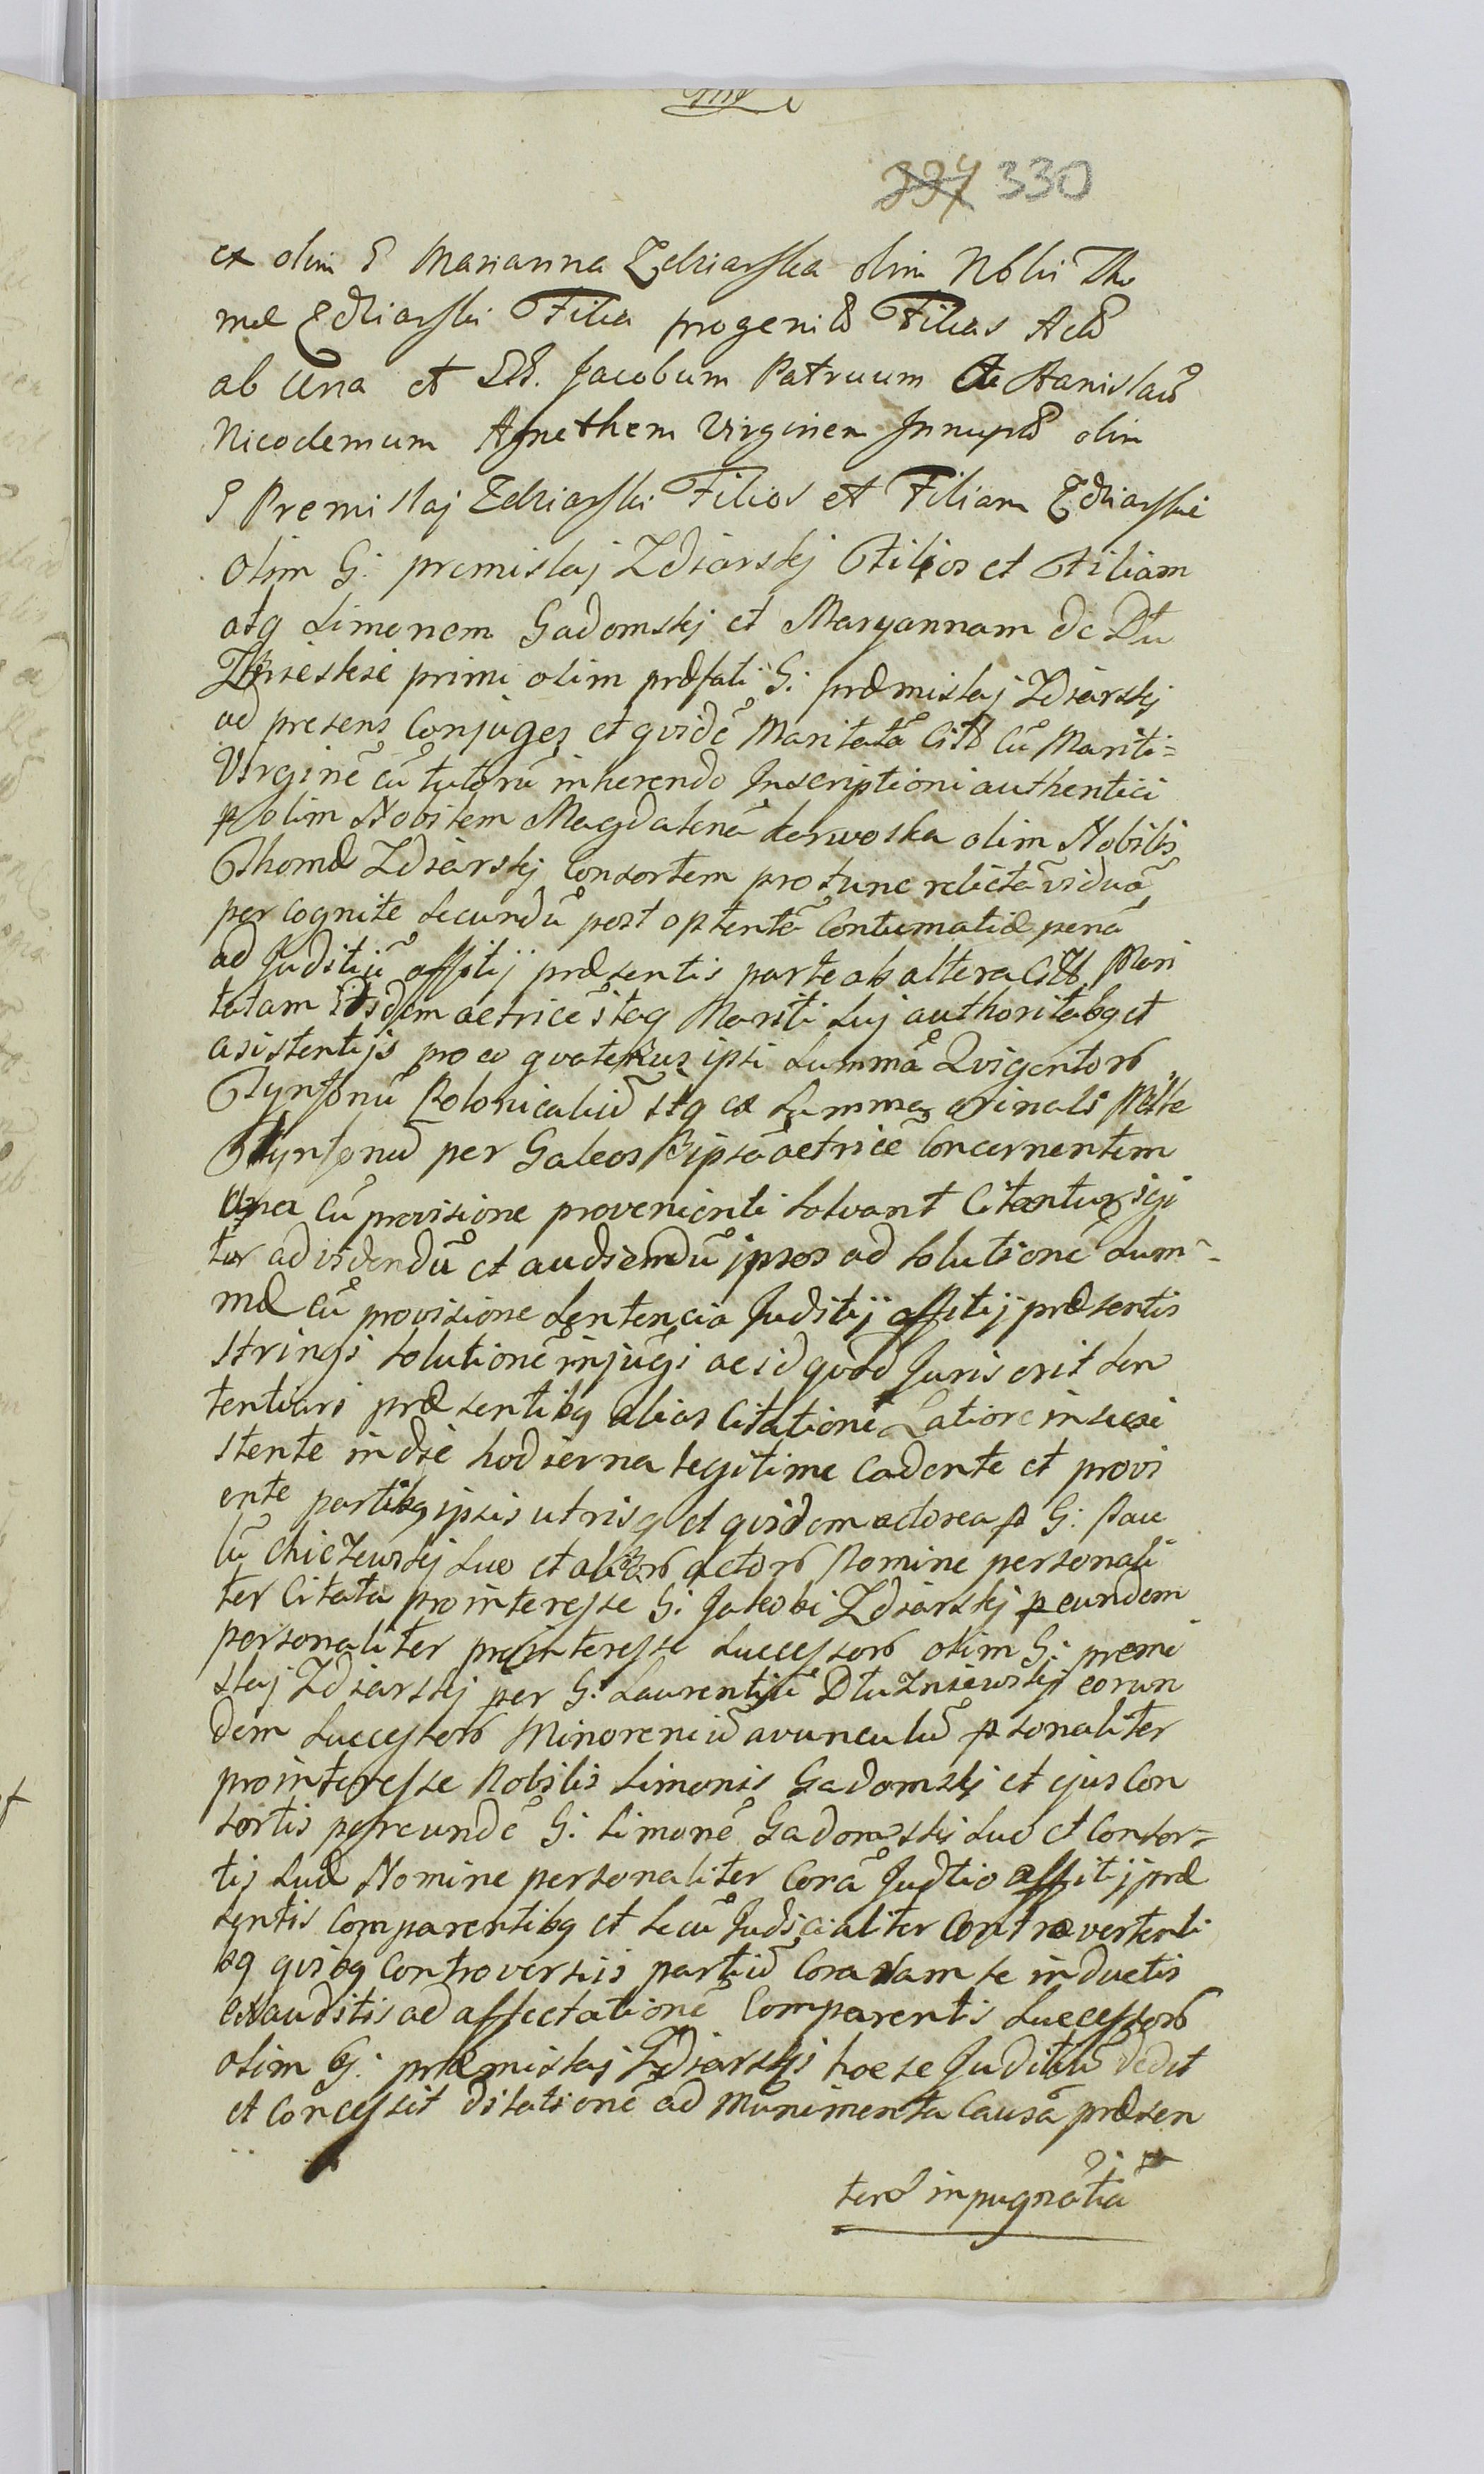 394 330
ex olim G Marianna Zdziarska olim Nblis Tho
mæ Zdziarski Filia progenitã Filias Actõ
ab una et GG. Jacobum Patruum Stanislaũ
Nicodemum Agnethem Virginem Innuptã olim
G Premislaj Zdziarski Filios et Filiam Zdziarskie
olim G: premislaj Zdziarskj Filios et Filiam
atq Simonem Gadomskj et Maryannam de Dłu
primi olim præfati G: præmislaj Zdziarskj
ad presens Conjuges et quidẽ Maritatã Citt cũ Mariti=
Virginẽ cũ tutorũ inherendo Inscriptioni authentici
p olim Nobilem Magdalenã karwoska olim Nobilis
Thomæ Zdziarskj Consortem pro tunc relictã viduã
per cognite secundũ post optentã Contumatiæ penã
ad Juditiũ offitij præsentis parte ab altera Citt Mari
tatam actricẽ itaq Mariti sui authoritabq et
asistentijs pro eo quatenus ipsi summã Quigentorũ
Tynfonũ Polonicaliũ itq ex summa orinali Mille
Tynfonũ per Galeos ipsã actricẽ Concernentem
una cũ provisione provenienti solvant Citantur igi
tur ad videndũ et audiendũ ipsos ad solutionẽ sum=
mæ cũ provisione sentencia Juditij offitij præsentis
stringi solutionẽ injũgi ac id quod Juris erit sen
tentiari præsentibq alias Citatione Latiore in se exi
stente in die hodierna legitime cadente et provi
ente partibq ipsis utrisq et quidem actorea p G: Pau
lũ Chiczewskj suo et aliorũ actorũ Nomine personali
ter Citata pro interesse G: Jakobi Zdziarskj p eundem
personaliter pro interesse successorũ olim G: premi
slaj Zdziarskj per G: Laurentiũ Dłuzniewskj eorun
dem successorũ Minoreniũ avunculũ p sonaliter
pro interesse Nobilis Simonis Gadomskj et ejus Con
sortis per eundẽ G: Simonẽ Gadomski suo et Consor=
tis suæ Nomine personaliter Corã Judtio offitij præ
sentis Comparentibq et secũ Judicialiter Controvertenti
bq quibq Controversiis partiũ Coram se inductis
exauditis ad affectationẽ Comparentis successorũ
olim G: præmislaj Zdziarskj hoc se Juditiũ dedit
et Concessit dilationẽ ad Munimenta Causã præsen
ten impugnatiã